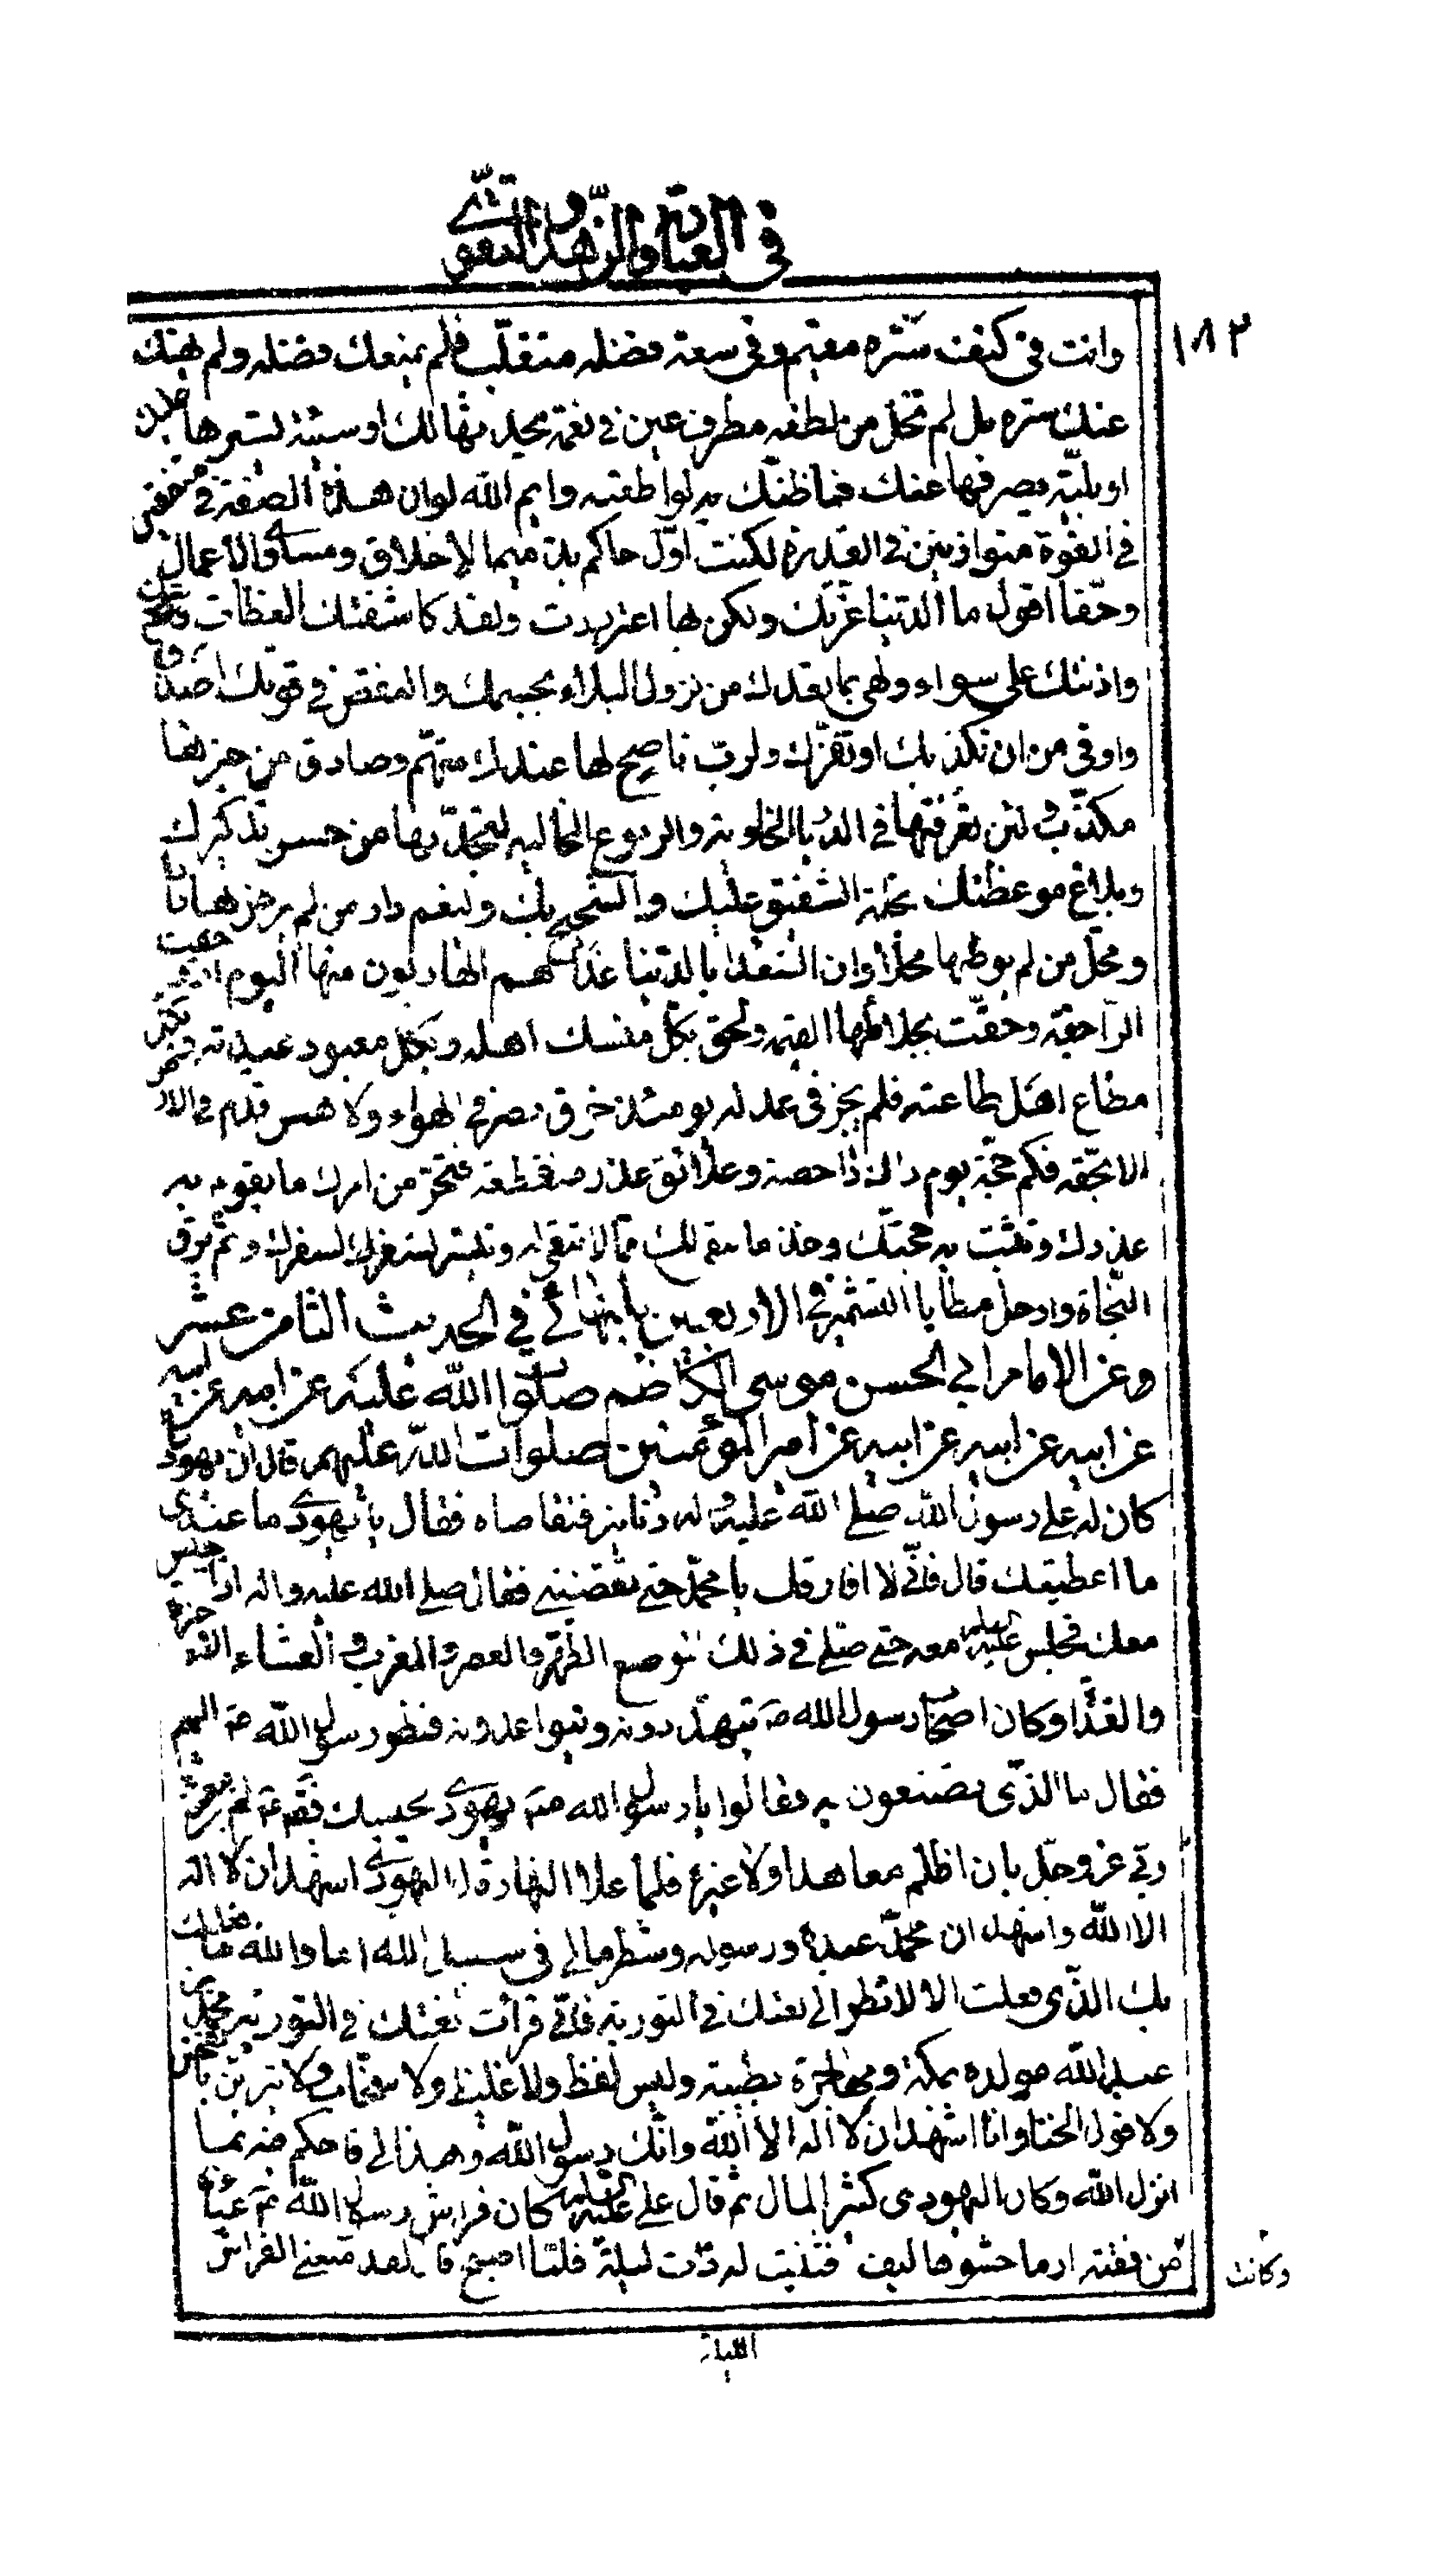 في العبادة والزهد والتقوى
١٨٣
وانت في كنف ستره مقيم وفي سعة فضله متقلب فلم يمنعك فضله ولم يهتك
عنك ستره بل لم تخل من لطفه مطرف عين في نعمة يحدثها لك او سيئة يسترها عليك
او بلية يصرفها عنك فما ظنك به لو اطعته وايم الله لو ان هذه الصفة في متفقين
في القوة متوازيين في القدرة لكنت اول حاكم بذميم الاخلاق ومساوي الاعمال
وحقا اقول ما الدنيا غرتك ولكن بها اغتررت ولقد كاشفتك العظات
واذنتك على سواء ولهي بما تعدك من نزول البلاء بجسمك والنقض في قوتك اصدق
واوفى من ان تكذبك او تغرك ولرب ناصح لها عندك متهم وصادق من خبرها
مكذب لئن تعرفتها في الديار الخاوية والربوع الخالية لتجدنها من حسن تذكيرك
وبلاغ موعظتك بمحلة الشفيق عليك والشحيح بك ولنعم دار من لم يرض بها دارا
ومحل من لم يوطنها محلا وان السعداء بالدنيا غدا هم الهاربون منها اليوم اذ رجفت
الراجفة وحقت بجلائلها القيمة ولحق بكل منسك اهله وبكل معبود عبدته وبكل
مطاع اهل طاعته فلم يجز في عدله يومئذ خرق بصر في الهواء ولا همس قدم في الارض
الا بحقه فكم حجة يوم ذاك داحضة وعلائق عذر منقطعة فتحر من امرك ما يقوم به
عذرك وتثبت به حجتك وخذ ما يبقى لك مما لا تبقى له وتيسر لسفرك وشم برق
النجاة وارحل مطايا التشمير في الاربعين للبهائي في الحديث الثامن عشر
وعن الامام ابي الحسن موسى الكاظم صلوات الله عليه عن ابيه عن ابيه
عن ابيه عن ابيه عن ابيه عن امير المؤمنين صلوات الله عليهم قال ان يهوديا
كان له على رسول الله صلى الله عليه واله دنانير فتقاضاه فقال يا يهودي ما عندي
ما اعطيك قال فاني لا افارقك يا محمد حتى تقضيني فقال صلى الله عليه واله اذا اجلس
معك فجلس عليه السلام معه حتى صلى في ذلك الموضع الظهر والعصر والمغرب والعشاء الاخرة
والغداة وكان اصحاب رسول الله ص يتهددونه ويتواعدونه فنظر رسول الله ص اليهم
فقال ما الذي تصنعون به فقالوا يا رسول الله ص يهودي يحبسك فقال لم يبعثني
ربي عز وجل بان اظلم معاهدا ولا غيره فلما علا النهار قال اليهودي اشهد ان لا اله
الا الله واشهد ان محمدا عبده ورسوله وشطر مالي في سبيل الله اما والله ما فعلت
بك الذي فعلت الا لانظر الى نعتك في التورية فاني قرات نعتك في التورية محمد بن
عبد الله مولده بمكة ومهاجره بطيبة وليس بفظ ولا غليظ ولا سخاب ولا متزين بالفحش
ولا قول الخنا وانا اشهد ان لا اله الا الله وانك رسول الله وهذا مالي فاحكم فيه بما
انزل الله وكان اليهودي كثير المال ثم قال علي عليه السلام كان فراش رسول الله ص عباءة
وكانت
مرفقته ادما حشوها ليف فثنيت له ذات ليلة فلما اصبح قال لقد منعني الفراش
الليلة